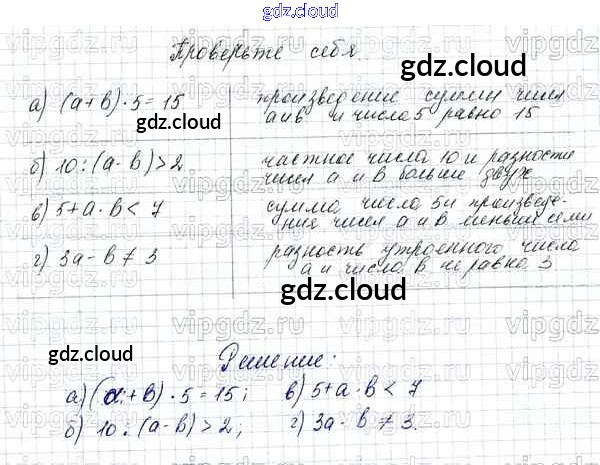 gdz.cloud
Проверьте себя.
gdz.cloud
а) (a+в)·5=15
произведение суммы чисел
а и в и числа 5 равно 15
gdz.cloud
б) 10:(a-в)>2
частное числа 10 и разности
чисел а и в больше двух
в) 5+a·в<7
сумма числа 5 и произведе-
ния чисел а и в меньше семи
г) 3a-в≠3
разность утроенного числа
а и числа в не равно 3
gdz.cloud
gdz.cloud
Решение:
а) (a+в)·5=15; в) 5+a·в<7
б) 10:(a-в)>2; г) 3a-в≠3.